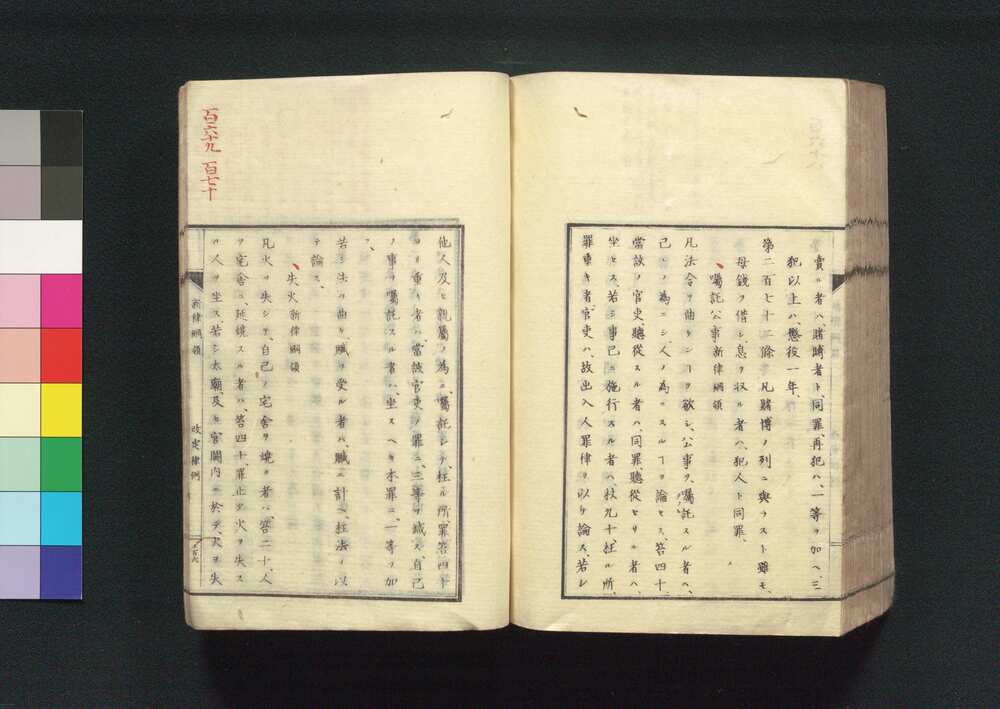 賣ル者ハ賭賻者ト同罪再犯ハ、一等ヲ加ヘ、三
犯以上ハ、懲役一年、
第二百七十二條 凡賭博ノ列ニ與ラスト雖モ、
母錢ヲ借シ、息ヲ収ル者ハ、犯人ト同罪、
囑託公事 新律綱領
凡法令ヲ曲ケンヿヲ欲シ、公事ヲ、囑託スル者ハ、
己レノ為ニシ、人ノ為ニスルヿヲ論セス、笞四十
當該ノ官吏聽從スル者ハ、同罪、聽從セサル者ハ、
坐セス、若シ事已ニ施行スル者ハ、杖九十、枉ル所、
罪重キ者、官吏ハ、故出入人罪律ヲ以テ論ス、若シ
他人及ヒ親屬ノ為ニ、囑託シテ、枉ル所、罪笞四十
ヨリ重キ者ハ、當該官吏ノ罪ニ、三等ヲ減ス、自己
ノ事ヲ囑託スル者ハ、坐スヘキ本罪ニ、一等ヲ加
フ、
若シ法ヲ曲ケ、贓ヲ受ル者ハ、贓ニ計ヘ、枉法ヲ以
テ論ス、
失火 新律綱領
凡火ヲ失シテ、自己ノ宅舎ヲ燒ク者ハ、笞二十、人
ノ宅舎ニ、延燒スル者ハ、笞四十、罪止タ火ヲ失ス
ル人ヲ坐ス、若シ太廟、及ヒ官闕内ニ於テ、火ヲ失
新律綱領
改定律例
百六十九 百七十